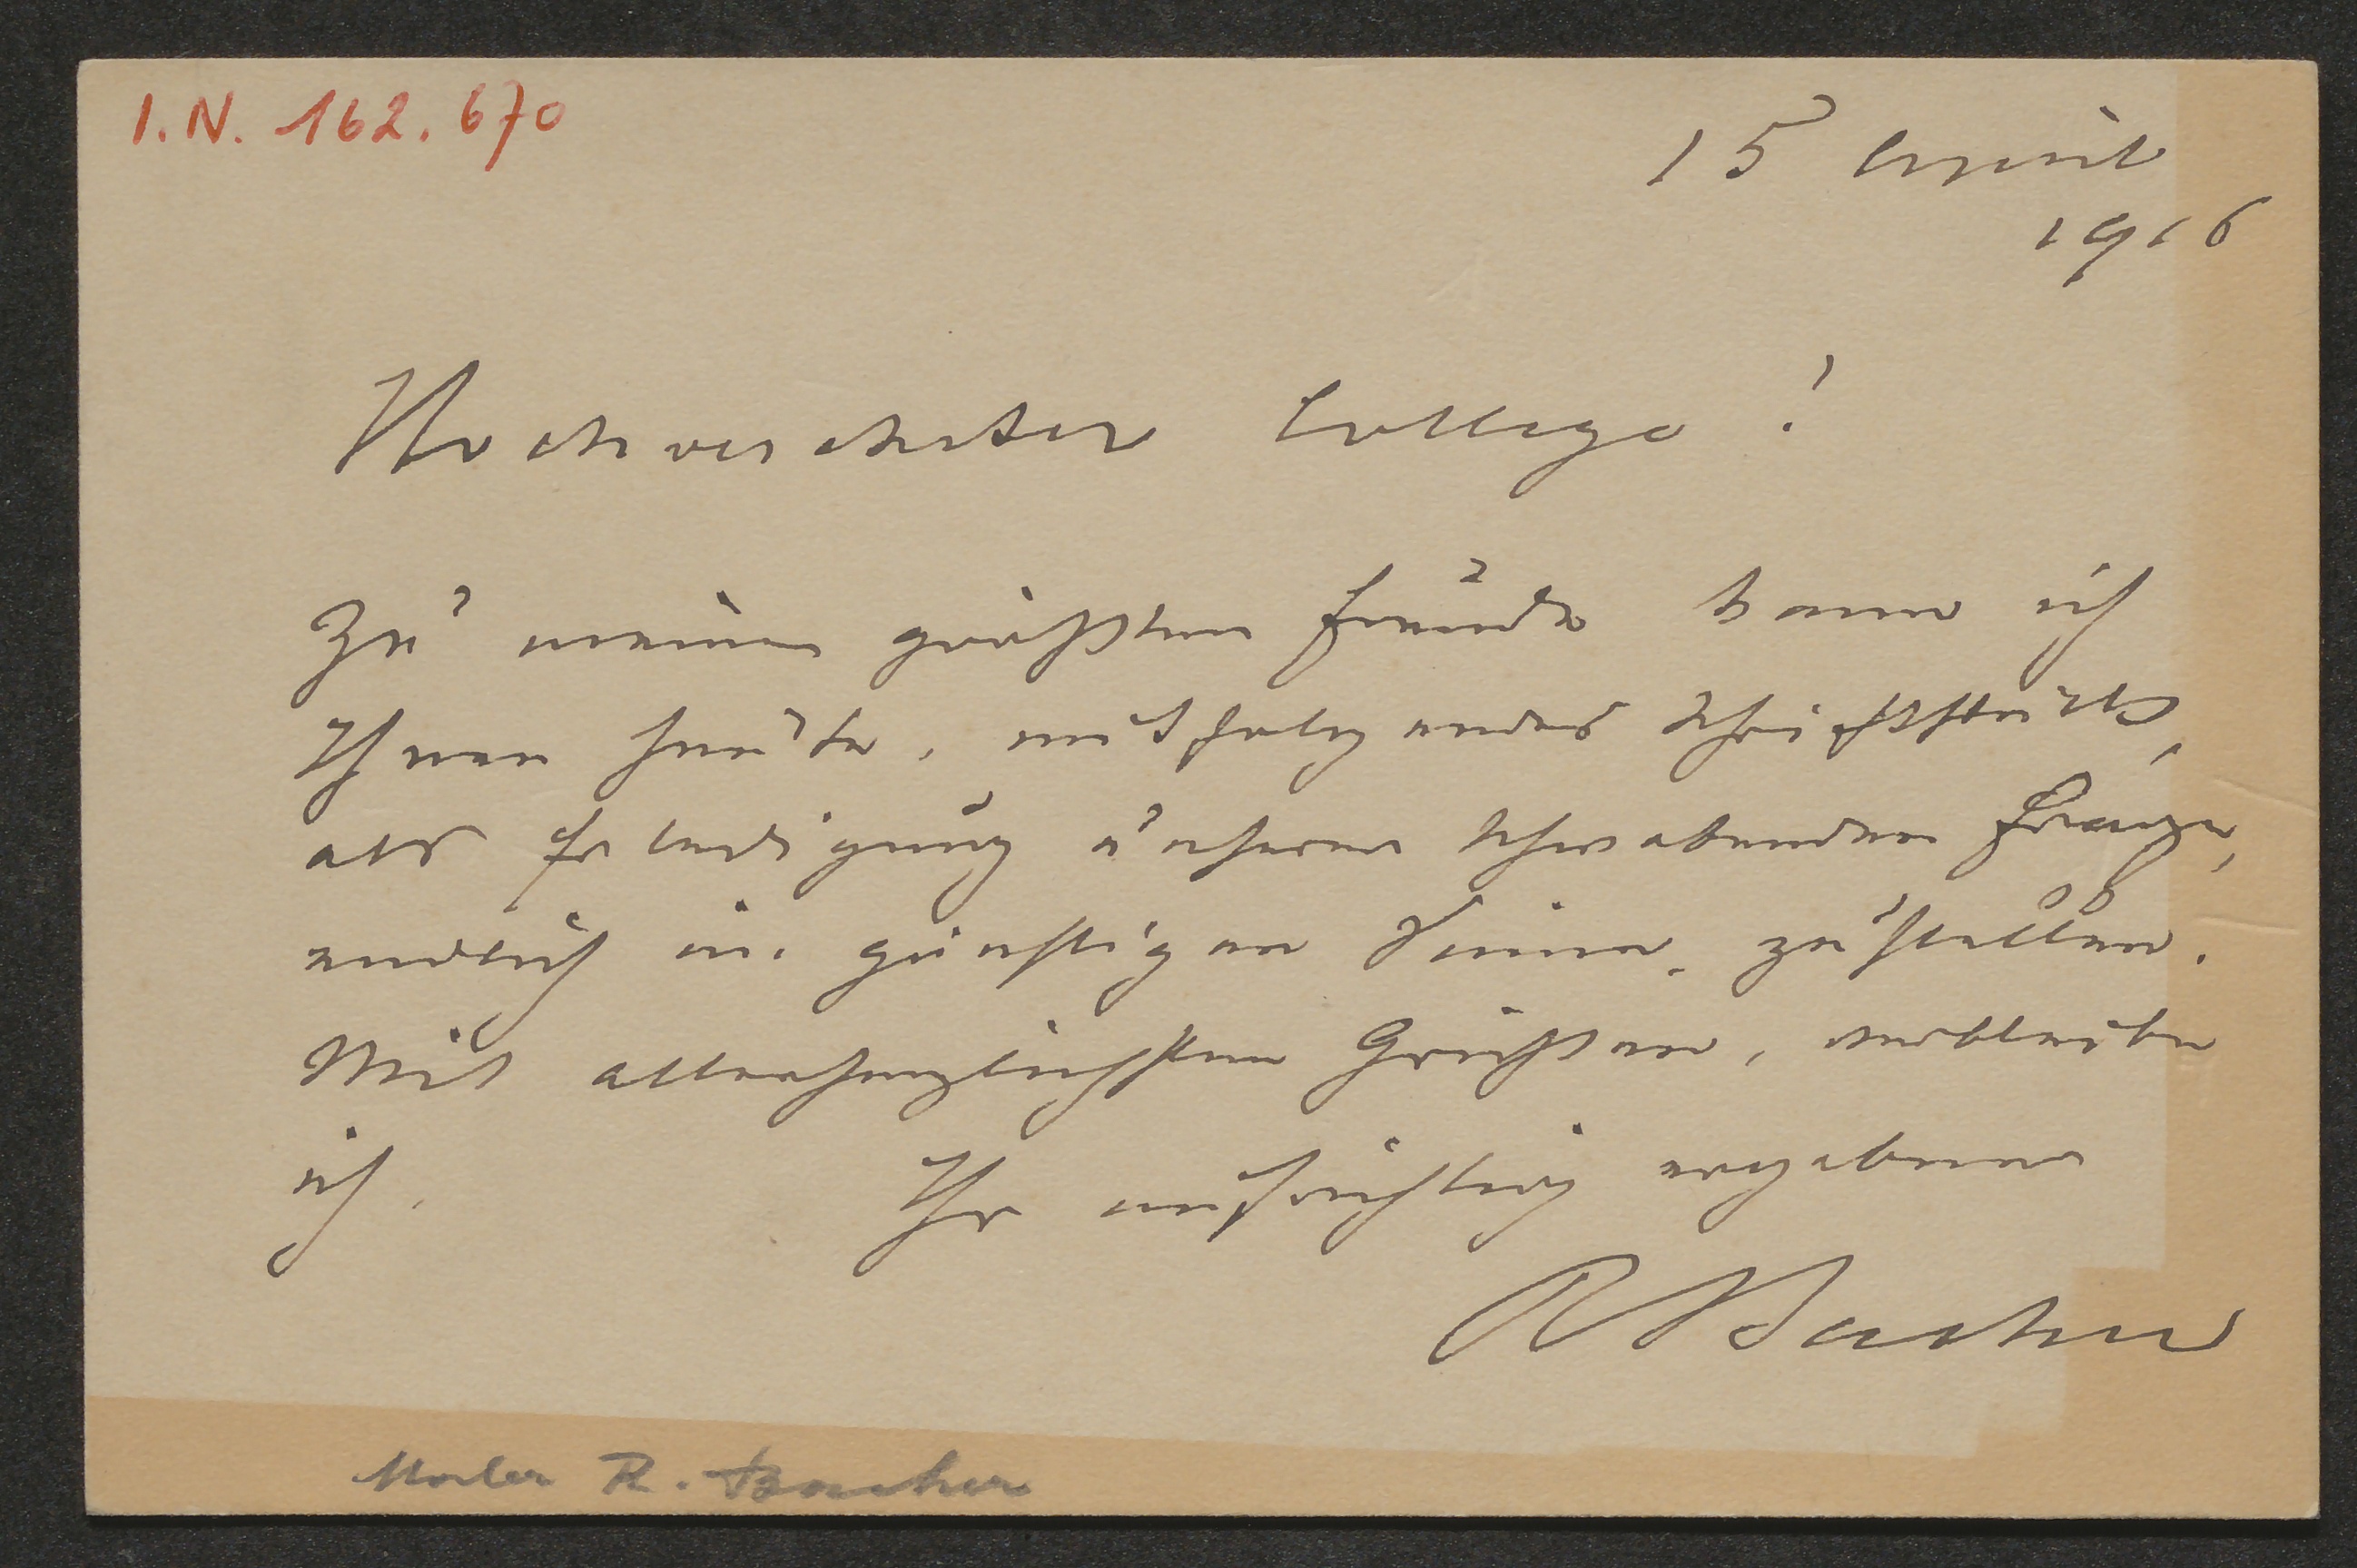 I.N. 162.670
15 April
1916
Hochverehrter College!
Zu meiner größten Freude kann ich
Ihnen heute, mitfolgendes Schriftstück,
als Erledigung unserer schwebenden Frage,
endlich in günstigen Sinne, zustellen.
Mit allerherzlichsten Grüßen, verbleibe
ich. Ihr aufrichtig ergebener
R Bacher
Maler R. Bacher